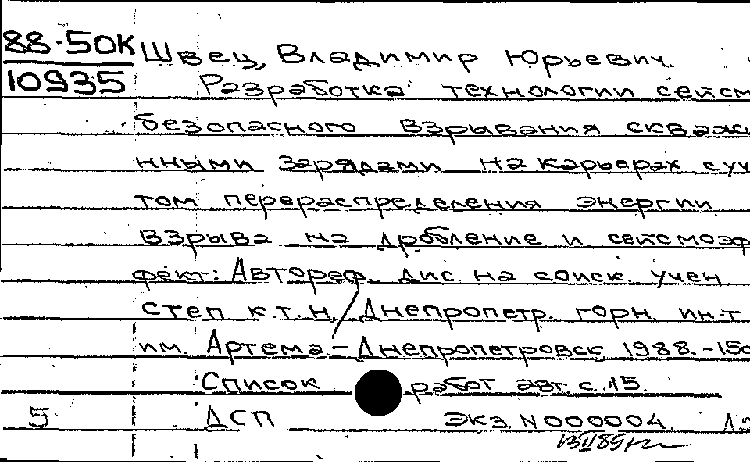 88-50К
10935
Швец, Владимир Юрьевич.
Разработка технологии сейсм
безопасного взрывания скваж
нными зарядами на карьерах с уч
том перераспределения энергии
взрыва на дробление и сейсмоэф
фект: Автореф. дис. на соиск. учен
степ к.т.н./Днепропетр. горн. ин-т
им. Артема - Днепропетровск 1988. -15с
Список работ авт. с. 15.
5 ДСП экз N000004